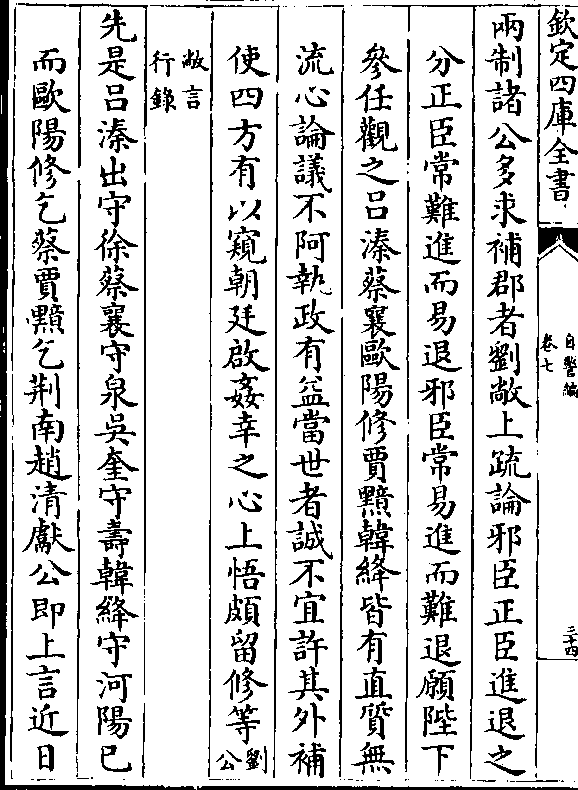 欽定四庫全書
自警編
卷七
三十四
兩制諸公多求補郡者劉敞上疏論邪臣正臣進退之
分正臣常難進而易退邪臣常易進而難退願陛下
參任觀之呂溱蔡襄歐陽修賈黯韓絳皆有直質無
流心論議不阿執政有益當世者誠不宜許其外補
使四方有以窺朝廷啟姦幸之心上悟頗留修等劉公
敞言行錄
先是呂溱出守徐蔡襄守泉吳奎守壽韓絳守河陽已
而歐陽修乞蔡賈黯乞荆南趙清獻公即上言近日